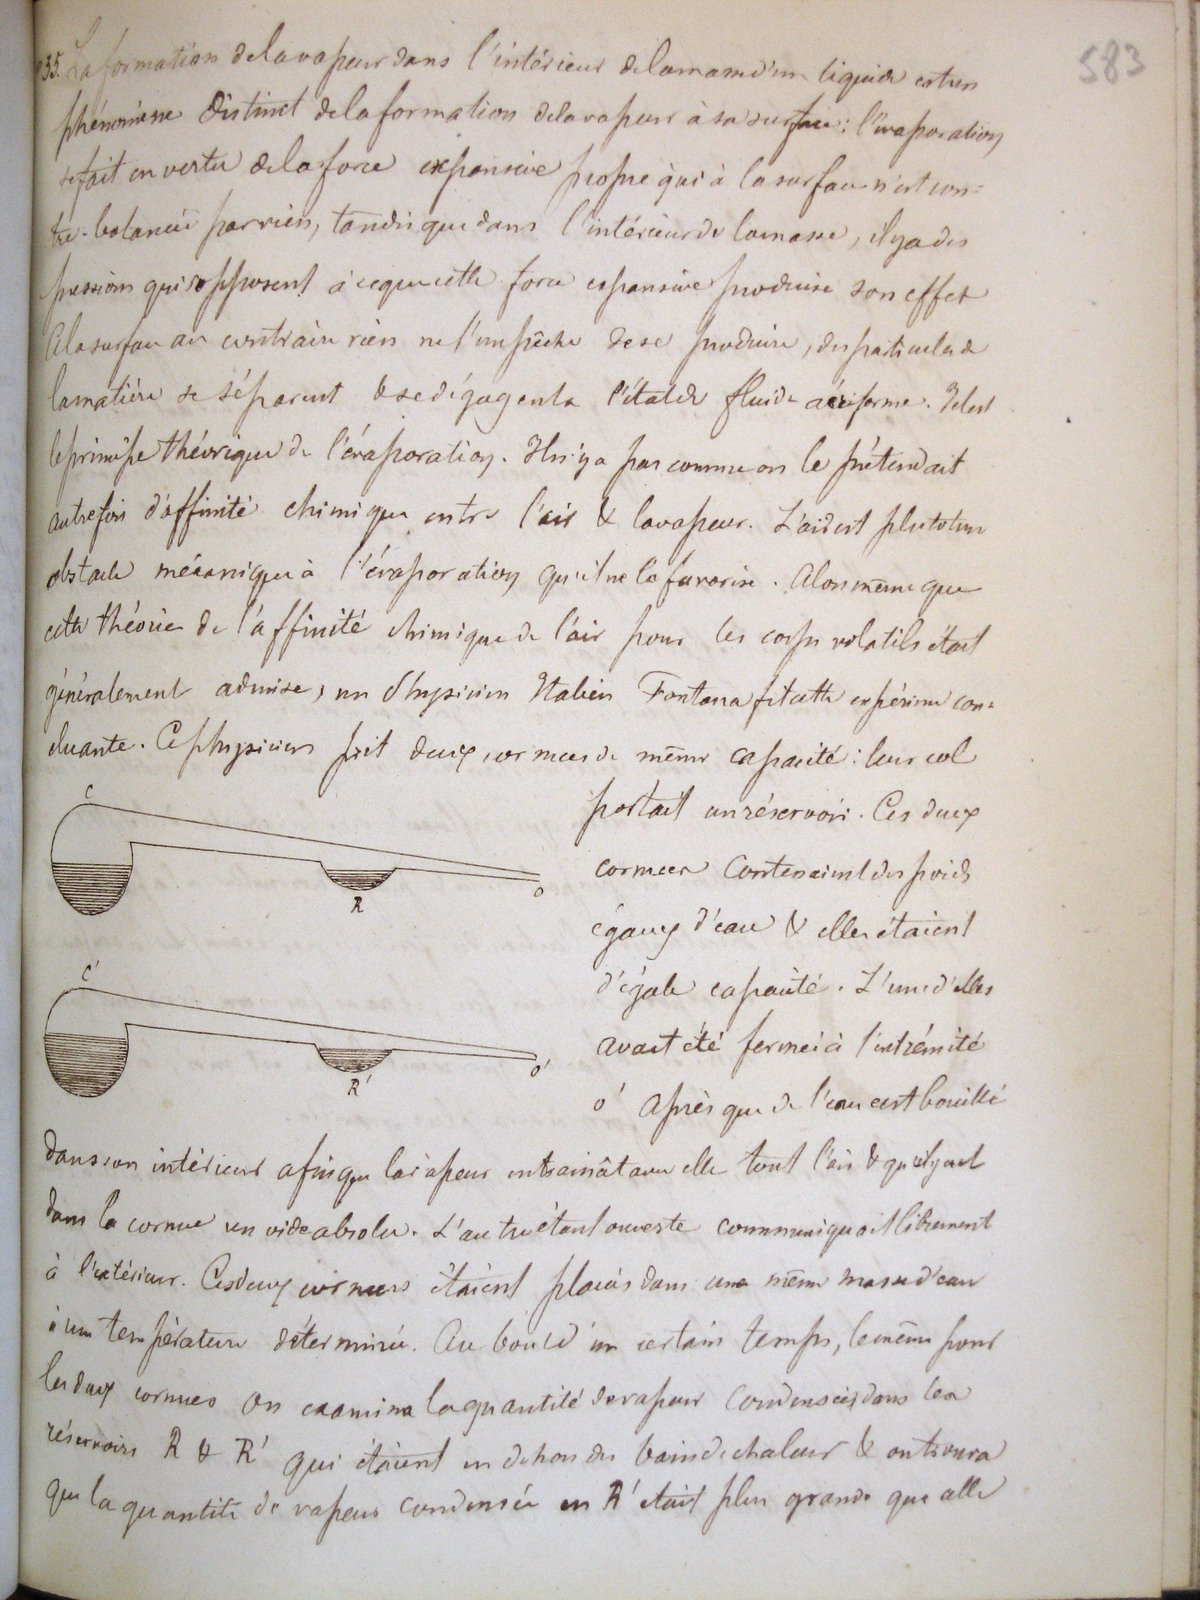 583
35. La formation de la vapeur dans l'intérieur de la masse d'un liquide est un
phénomène distinct de la formation de la vapeur à sa surface : l'évaporation
se fait en vertu de la force expansive propre qui à la surface n'est con=
tre-balancée par rien, tandis que dans l'intérieur de la masse, il y a des
pressions qui s'opposent à ce que cette force expansive produise son effet
A la surface au contraire rien ne l'empêche de se produire, des particules de
la matière se séparent & se dégagent à l'état de fluide aériforme. Tel est
le principe théorique de l'évaporation. Il n'y a pas comme on le prétendait
autrefois d'affinité chimique entre l'air & la vapeur. L'air est plutôt un
obstacle mécanique à l'évaporation qu'il ne la favorise. Alors même que
cette théorie de l'affinité chimique de l'air pour les corps volatils était
généralement admise, un Physicien Italien Fontana fit cette expérience con=
cluante. Ce physicien prit deux cornues de même capacité : leur col
portait un réservoir. Ces deux
cornues contenaient des poids
égaux d'eau & elles étaient
d'égale capacité. L'une d'elles
avait été fermée à l'extrémité
o' après que de l'eau eut bouilli
C
R
O
C'
R'
O'
dans son intérieur afin que la vapeur entrainât avec elle tout l'air & qu'il y eut
dans la cornue un vide absolu. L'autre étant ouverte communiquait librement
à l'extérieur. Ces deux cornues étaient placées dans une même masse d'eau
à une température déterminée. Au bout d'un certain temps, le même pour
les deux cornues on examina la quantité de vapeur condensée dans les
réservoirs R & R' qui étaient en dehors du bain de chaleur & on trouva
que la quantité de vapeur condensée en R' était plus grande que celle